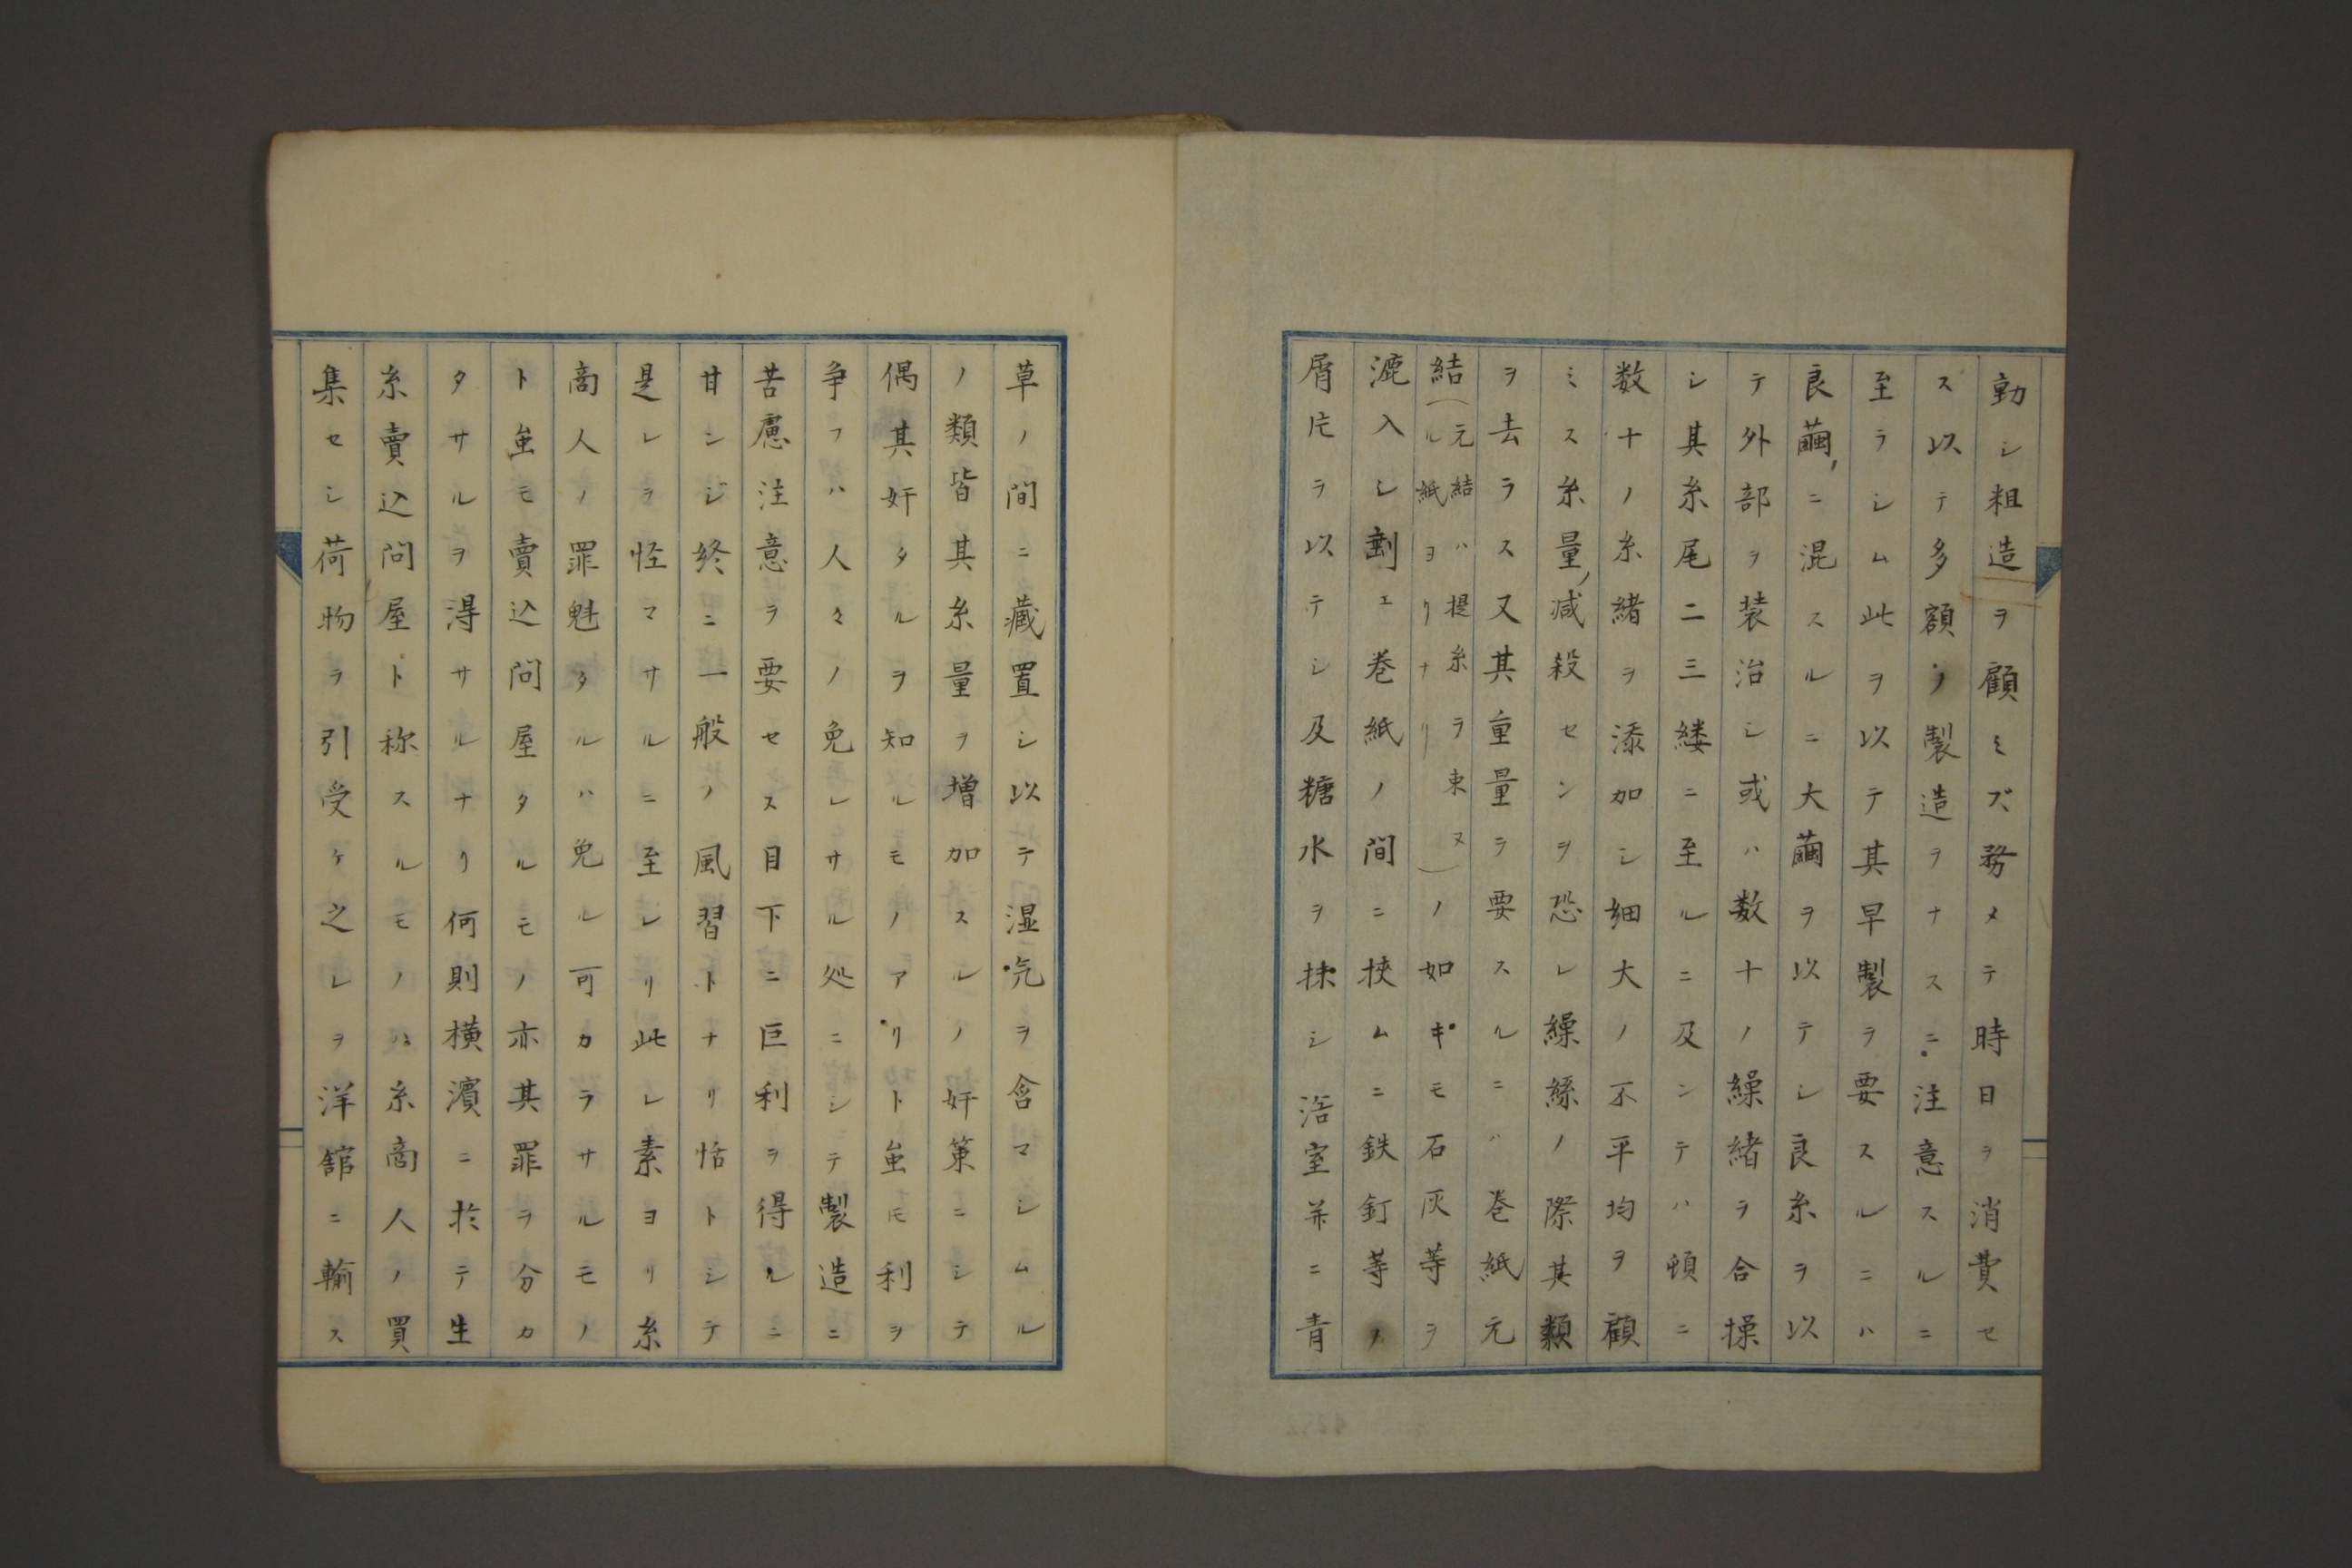 勤シ粗造ヲ顧ミズ務メテ時日ヲ消費セ
ス以テ多額ノ製造ヲナスニ注意スルニ
至ラシム此ヲ以テ其早製ヲ要スルニハ
良繭ニ混スルニ大繭ヲ以テシ良糸ヲ以
テ外部ヲ装治シ或ハ数十ノ繰緒ヲ合操
シ其糸尾二三縷ニ至ルニ及ンテハ頓ニ
数十ノ糸緒ヲ添加シ細大ノ不平均ヲ顧
ミス糸量減殺センヲ恐レ繰絲ノ際其類
ヲ去ラス又其重量ヲ要スルニハ巻紙元
結(元結ハ提糸ヲ束ヌル紙ヨリナリ)ノ如キモ石灰等ヲ
漉入シ劃ヱ巻紙ノ間ニ挟ムニ鉄釘等ノ
屑片ヲ以テシ及糖水ヲ抹シ浴室并ニ青
草ノ間ニ蔵置シ以テ湿気ヲ含マシムル
ノ類皆其糸量ヲ増加スルノ奸策ニシテ
偶其奸タルヲ知ルモノアリト虽モ利ヲ
争フハ人々ノ免レサル処ニシテ製造ニ
苦慮注意ヲ要セス目下ニ巨利ヲ得ルニ
甘ンジ終ニ一般ノ風習トナリ恬トシテ
是レヲ怪マサルニ至レリ此レ素ヨリ糸
商人ノ罪魁タルハ免ル可カラサルモノ
ト虽モ賣込問屋タルモノ亦其罪ヲ分カ
タサルヲ得サルナリ何則横濱ニ於テ生
糸賣込問屋ト称スルモノハ糸商人ノ買
集セシ荷物ヲ引受ケ之レヲ洋舘ニ輸ス